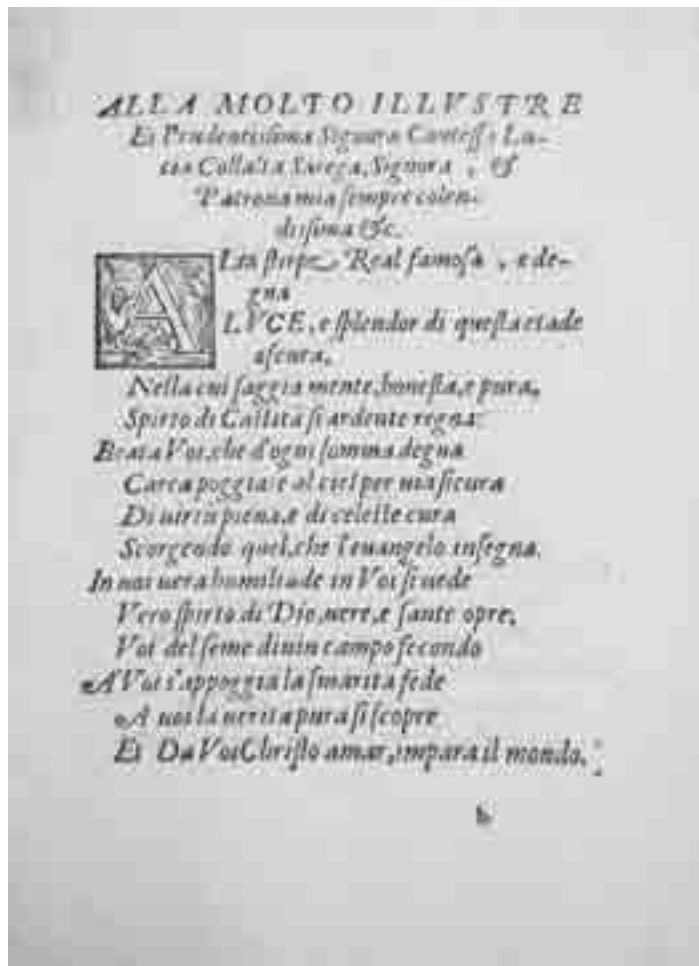 ALLA MOLTO ILLVSTRE
Et Prudentissima Signora Contessa Lu-
cia Collalta Sarega, Signora, &
Patrona mia sempre colen-
dissima &c.
ALta stirpe Real famosa, e de-
gna
LVCE, e splendor di questa etade
oscura,
Nella cui saggia mente, honesta, e pura,
Spirto di Castità sì ardente regna:
Beata Voi, che d'ogni somma degna
Carca poggiate al ciel per via sicura
Di uirtu piena, e di celeste cura
Scorgendo quel, che l'euangelo insegna.
In uoi uera humiltade in Voi si uede
Vero spirto di Dio, uere, e sante opre,
Voi del seme diuin campo fecondo
A Voi s'appoggia la smarrita fede
A uoi la uerita pura si scopre
Et Da Voi Christo amar, impara il mondo.